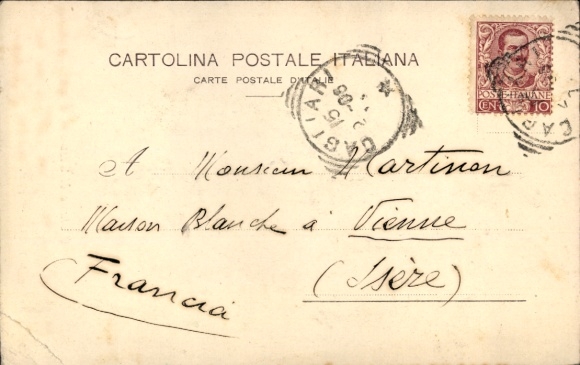 CARTOLINA POSTALE ITALIANA
CARTE POSTALE D'ITALIE
POSTE ITALIANE
CENT 10
CAGLIARI
15
05
A Monsieur Martinon
Maison Blanche à Vienne
(Isère)
Francia